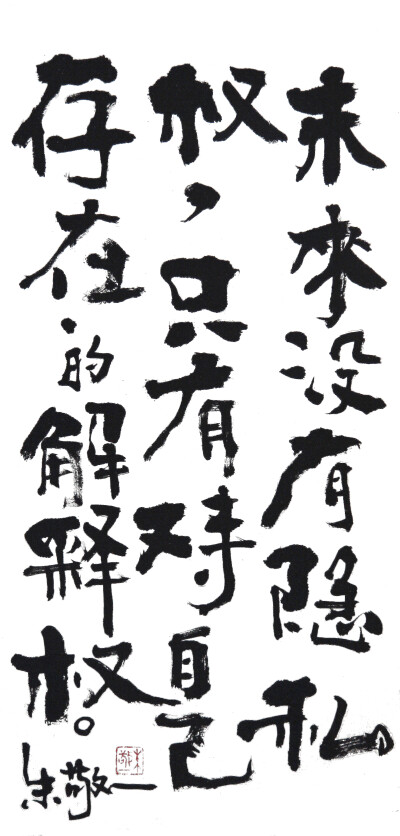 未來没有隐私
权，只有对自己
存在的解释权。
朱敬一